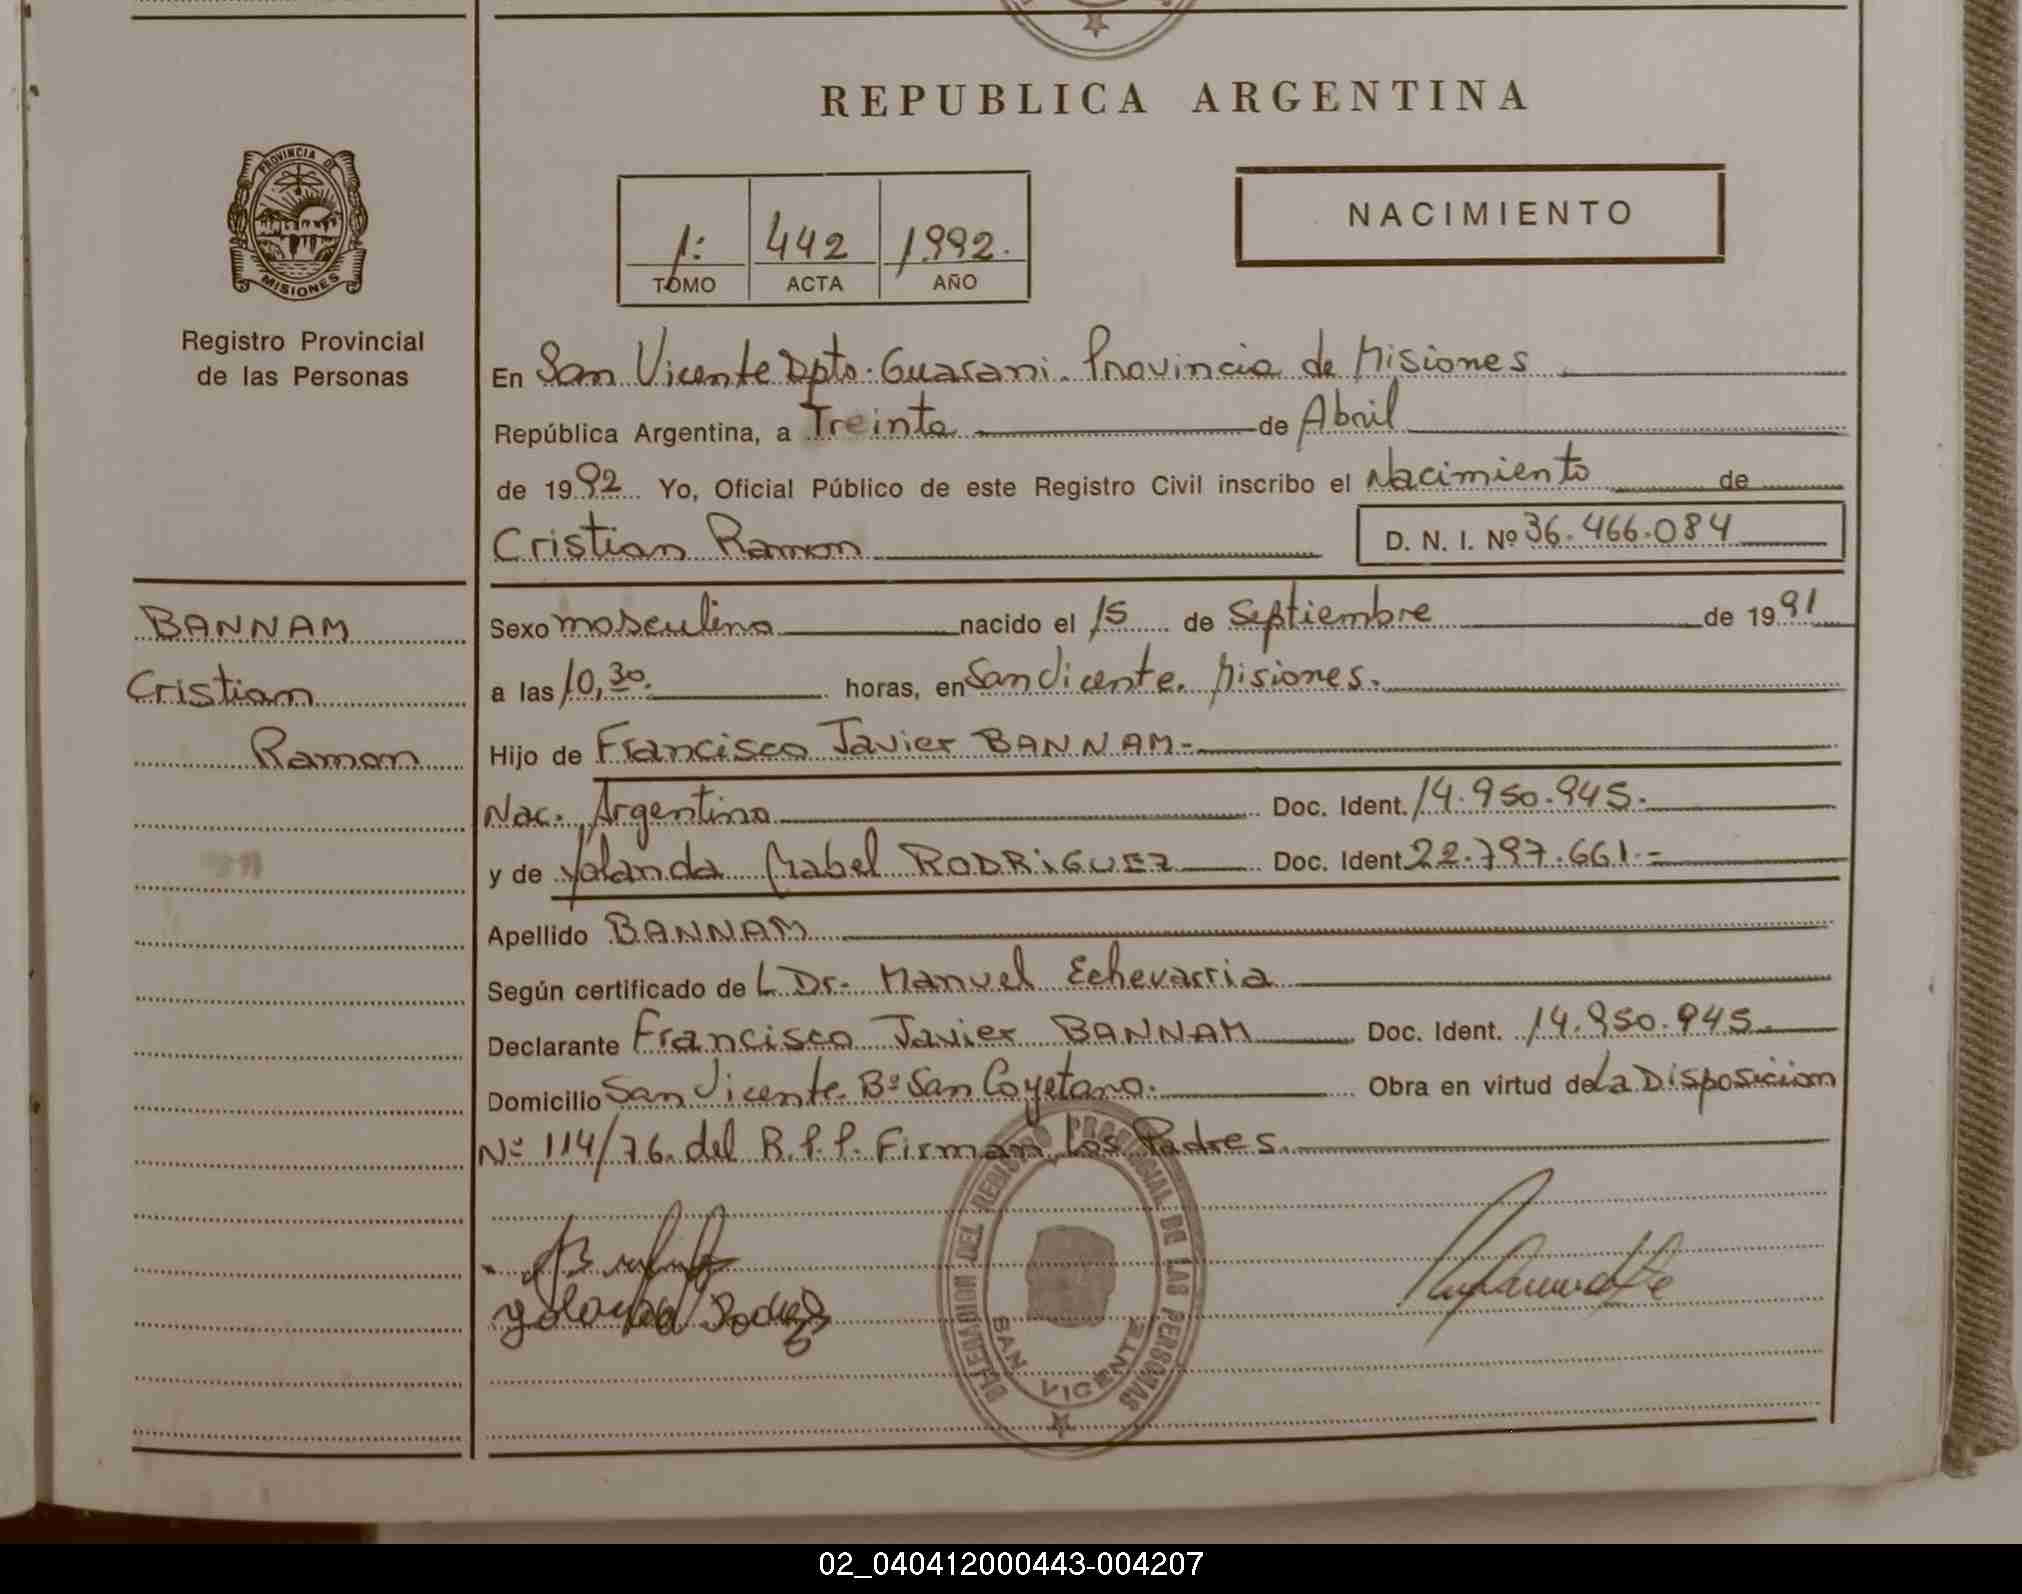 REPUBLICA ARGENTINA
PROVINCIA DE
MISIONES
Registro Provincial
de las Personas
1: 442 1.992.
TOMO ACTA AÑO
NACIMIENTO
En San Vicente Dpto. Guarani. Provincia de Misiones
República Argentina, a Treinta de Abril
de 1992 Yo, Oficial Público de este Registro Civil inscribo el Nacimiento de
Cristian Ramon D. N. I. Nº 36.466.084
BANNAM
Cristian
Ramon
Sexo masculino nacido el 15 de Septiembre de 1991
a las 10,30. horas, en San Vicente. Misiones.
Hijo de Francisco Javier BANNAM-
Nac. Argentina Doc. Ident. 14.950.945.
y de Yolanda Mabel RODRiGUEZ Doc. Ident. 22.797.661.-
Apellido BANNAM
Según certificado de L Dr. Manuel Echevarria
Declarante Francisco Javier BANNAM Doc. Ident. 14.950.945.
Domicilio San Vicente. Bº San Cayetano. Obra en virtud de La Disposicion
Nº 114/76. del R.P.P. Firman los Padres.
DEL REGISTRO PROVINCIAL DE LAS PERSONAS
SAN VICENTE
02_040412000443-004207